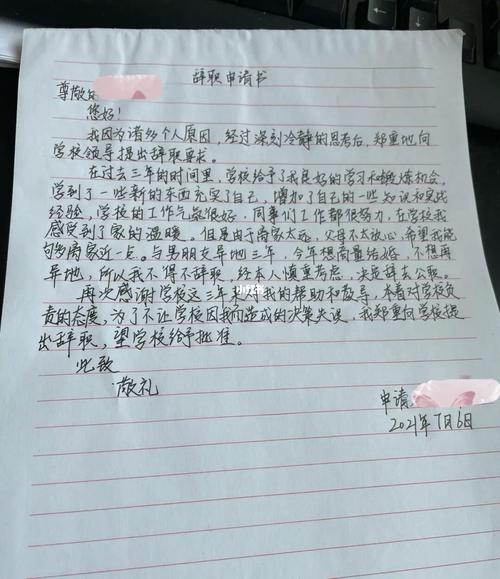 辞职申请书
尊敬的
您好！
我因为诸多个人原因，经过深刻冷静的思考后，郑重地向
学校领导提出辞职要求。
在过去三年的时间里，学校给予了我良好的学习和锻炼机会，
学到了一些新的东西充实了自己，增加了自己的一些知识和实战
经验，学校的工作气氛很好，同事们工作都很努力，在学校我
感受到了家的温暖。但是由于离家太远，父母不太放心，希望我能
离家近一点。与男朋友异地三年，今年想商量结婚，不想再
异地，所以我不得不辞职，经本人慎重考虑，决定辞去公职。
再次感谢学校这三年来对我的帮助和教导，本着对学校负
责的态度，为了不让学校因我而造成的决策失误，我郑重向学校提
出辞职，望学校给予批准。
此致
敬礼
申请
2021年7月6日
小红书